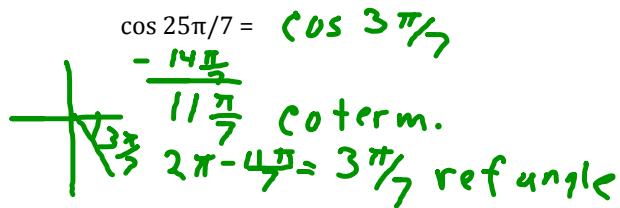 cos 25π/7 = cos 3π/7
- 14π/7
11π/7 coterm.
3π/7
2π - 4π/7 = 3π/7 ref angle